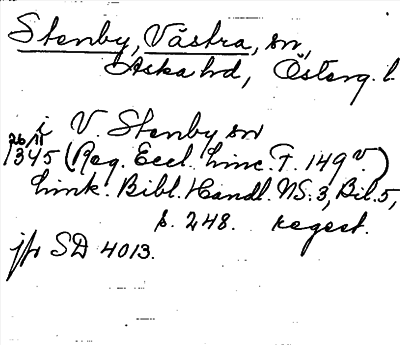 Stenby, Västra, sn,
Aska hd, Österg. l.
i V. Stenby sn
26/11
1345 (Reg. Eccl. Linc. F. 149v)
Link. Bibl. Handl. NS. 3, Bil. 5,
s. 248. regest.
jfr SD 4013.